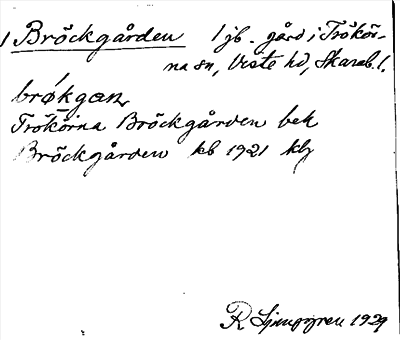 1 Bröckgården 1 jb. gård i Trökör-
na sn, Viste hd, Skarab. l.
brø̄kgan
Trökörna Bröckgården bek
Bröckgården kb 1921 klg
R Ljunggren 1929